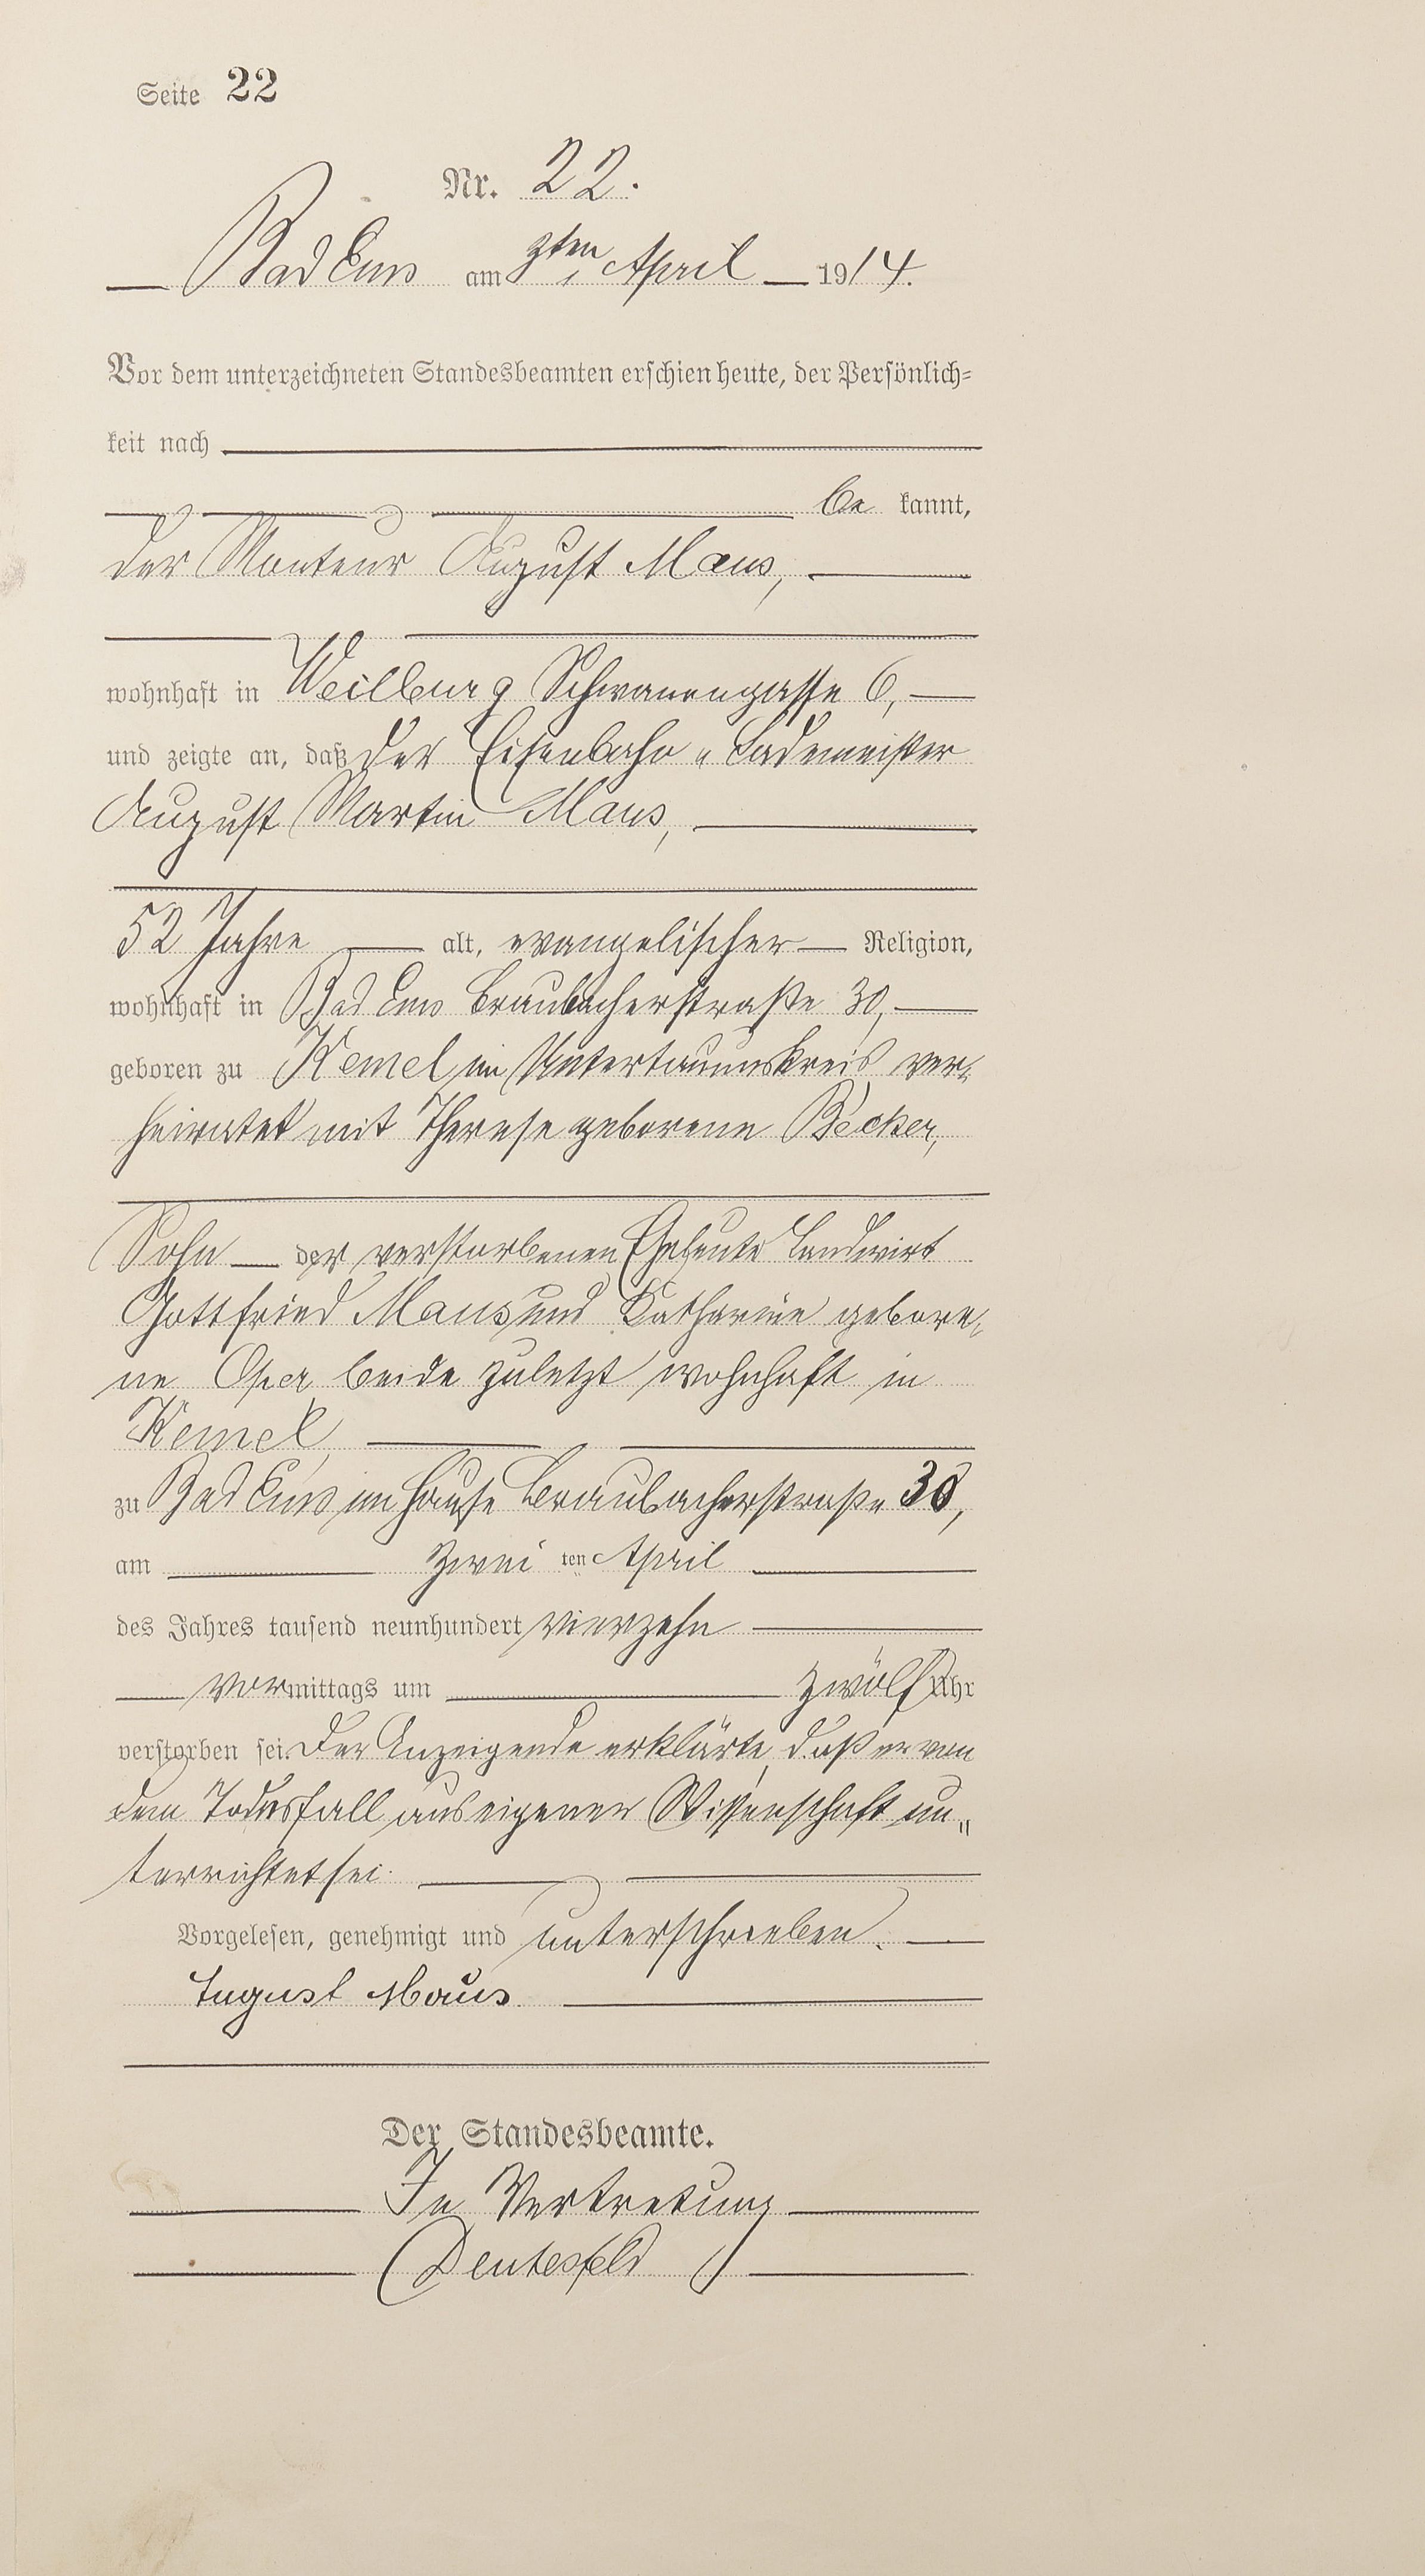 Seite 22
Nr. 22.
Bad Ems am 3ten April 1914.
Vor dem unterzeichneten Standesbeamten erschien heute, der Persönlich=
keit nach
be kannt,
der Monteur August Maus,
wohnhaft in Weilburg Schwanengasse 6,
und zeigte an, daß der Eisenbahn „ Lademeister
August Martin Maus,
52 Jahre alt, evangelischer Religion,
wohnhaft in Bad Ems Braubacherstraße 30,
geboren zu Kemel im Untertaunuskreis ver„
heiratet mit Therese geborene Becker,
Sohn der verstorbenen Eheleute Landwirt
Gottfried Maus und Katharine gebore„
ne beide zuletzt wohnhaft in
Kemel,
zu Bad Ems im Hause Braubacherstraße 30,
am zwei ten April
des Jahres tausend neunhundert vierzehn
vormittags um zwölf Uhr
verstorben sei. Der Anzeigende erklärte, daß er von
dem Todesfall aus eigener Wissenschaft un„
terrichtet sei.
Vorgelesen, genehmigt und unterschrieben.
August Maus
Der Standesbeamte.
In Vertretung